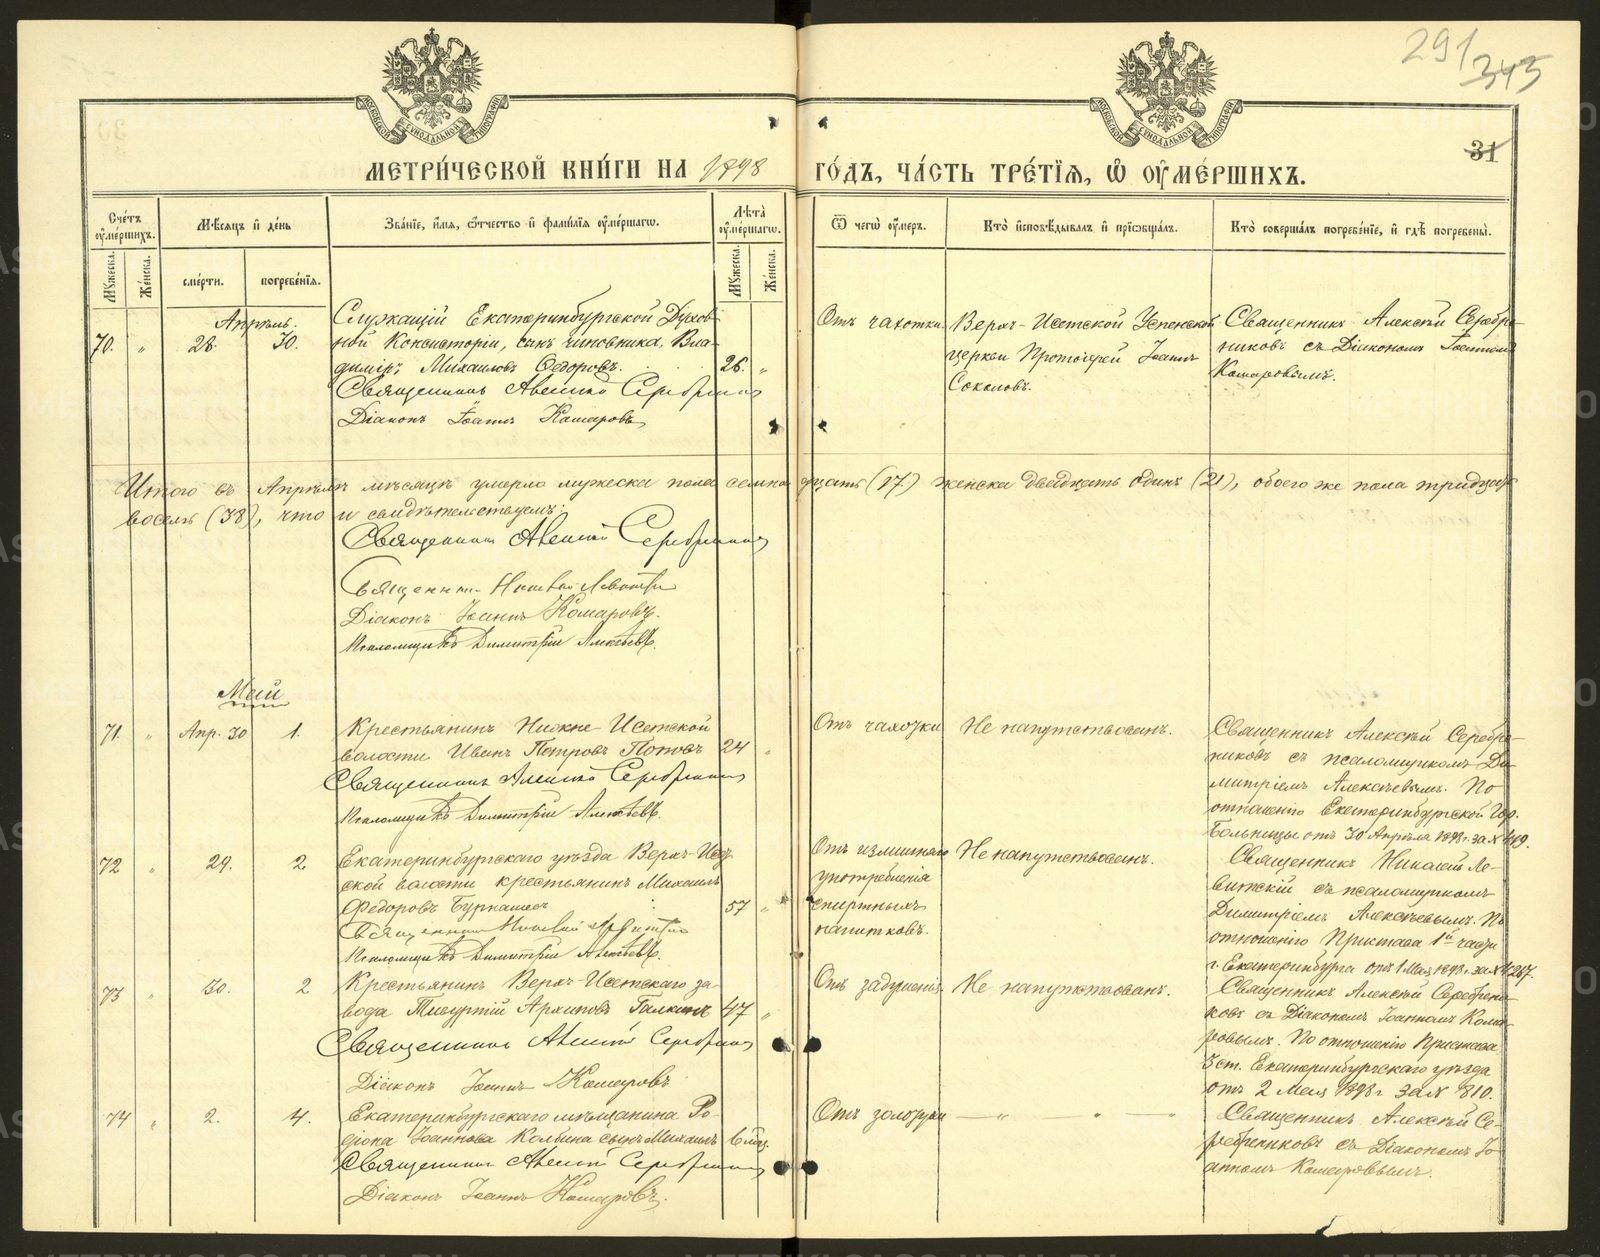 291
343
МОСКОВСКОЙ СѴНОДАЛЬНОЙ ТИПОГРАФІИ
МОСКОВСКОЙ СѴНОДАЛЬНОЙ ТИПОГРАФІИ
31
МЕТРИ́ЧЕСКОЙ КНИ́ГИ НА 1898 ГО́ДЪ, ЧА́СТЬ ТРЕ́ТЇѦ, Ѡ ОУ҆МЕ́РШИХЪ.
Сче́тъ оу҆ме́ршихъ.
Мѣ́сѧцъ и҆ де́нь
Зва́нїе, и҆́мѧ, ѻ҆́тчество и҆ фами́лїѧ оу҆ме́ршагѡ.
Лѣ̑та̀ оу҆ме́ршагѡ.
Ѿ чегѡ̀ оу҆́меръ.
Кто̀ и҆сповѣ́дывалъ и҆ прїѡбща́лъ.
Кто̀ соверша́лъ погребе́нїе, и҆ гдѣ̀ погребены̀.
Мꙋ́жеска.
Же́нска.
сме́рти.
погребе́нїѧ.
Мꙋ́жеска.
Же́нска.
Апрѣль.
70. „ 28. 30. Служащій Екатеринбургской Духов-
ной Консисторіи, сынъ чиновника, Вла-
димiръ Михаиловъ Ѳедоровъ. 26. „
Отъ чахотки.
Верхъ-Исетской Успенской
церкви Протоіерей Іоаннъ
Соколовъ.
Священникъ Алексѣй Серебре-
никовъ съ Діакономъ Іоанномъ
Комаровымъ.
Священникъ Алексѣй Серебрениковъ
Діаконъ Іоаннъ Комаровъ
Итого въ Апрѣлѣ мѣсяцѣ умерло мужеска пола семнадцать (17) женска двадцать одинъ (21), обоего же пола тридцать
восемь (38), что и свидѣтельствуемъ:
Священникъ Алексѣй Серебрениковъ
Священникъ Николай Левитскій
Діаконъ Іоаннъ Комаровъ.
Псаломщикъ Димитрій Алексѣевъ.
Май
71. „ Апр. 30 1. Крестьянинъ Нижне-Исетской
волости Иванъ Петровъ Поповъ 24 „
Священникъ Алексѣй Серебрениковъ
Псаломщикъ Димитрій Алексѣевъ.
Отъ чахотки
Не напутствованъ.
Священникъ Алексѣй Серебре-
никовъ съ псаломщикомъ Ди-
митріемъ Алексѣевымъ. По
отношенію Екатеринбургской Гор.
Больницы отъ 30 Апрѣля 1898 г. за № 449.
72 „ 29. 2 Екатеринбургскаго уѣзда Верхъ-Исет-
ской волости крестьянинъ Михаилъ
Федоровъ Бурнашевъ 57 „
Священникъ Николай Левитскій
Псаломщикъ Димитрій Алексѣевъ.
Отъ излишняго
употребленія
спиртныхъ
напитковъ.
Не напутствованъ.
Священникъ Николай Ле-
витскій съ псаломщикомъ
Димитріемъ Алексѣевымъ. По
отношенію Пристава 1й части
г. Екатеринбурга отъ 1 Мая 1898 г. за №
73 „ 30. 2 Крестьянинъ Верхъ-Исетскаго за-
вода Тивуртій Архиповъ Галкинъ 47 „
Священникъ Алексѣй Серебрениковъ
Діаконъ Іоаннъ Комаровъ
Отъ задушенія
Не напутствованъ.
Священникъ Алексѣй Серебрени-
ковъ съ Діакономъ Іоанномъ Кома-
ровымъ. По отношенію Пристава
3 ст. Екатеринбургскаго уѣзда
отъ 2 Мая 1898 г. за № 810.
74 „ 2. 4. Екатеринбургскаго мѣщанина Ро-
діона Іоаннова Колбина сынъ Михаилъ 6 мѣс.
Священникъ Алексѣй Серебрениковъ
Діаконъ Іоаннъ Комаровъ.
Отъ золотухи
— „ „ —
Священникъ Алексѣй Се-
ребрениковъ съ Діакономъ Іо-
анномъ Комаровымъ.